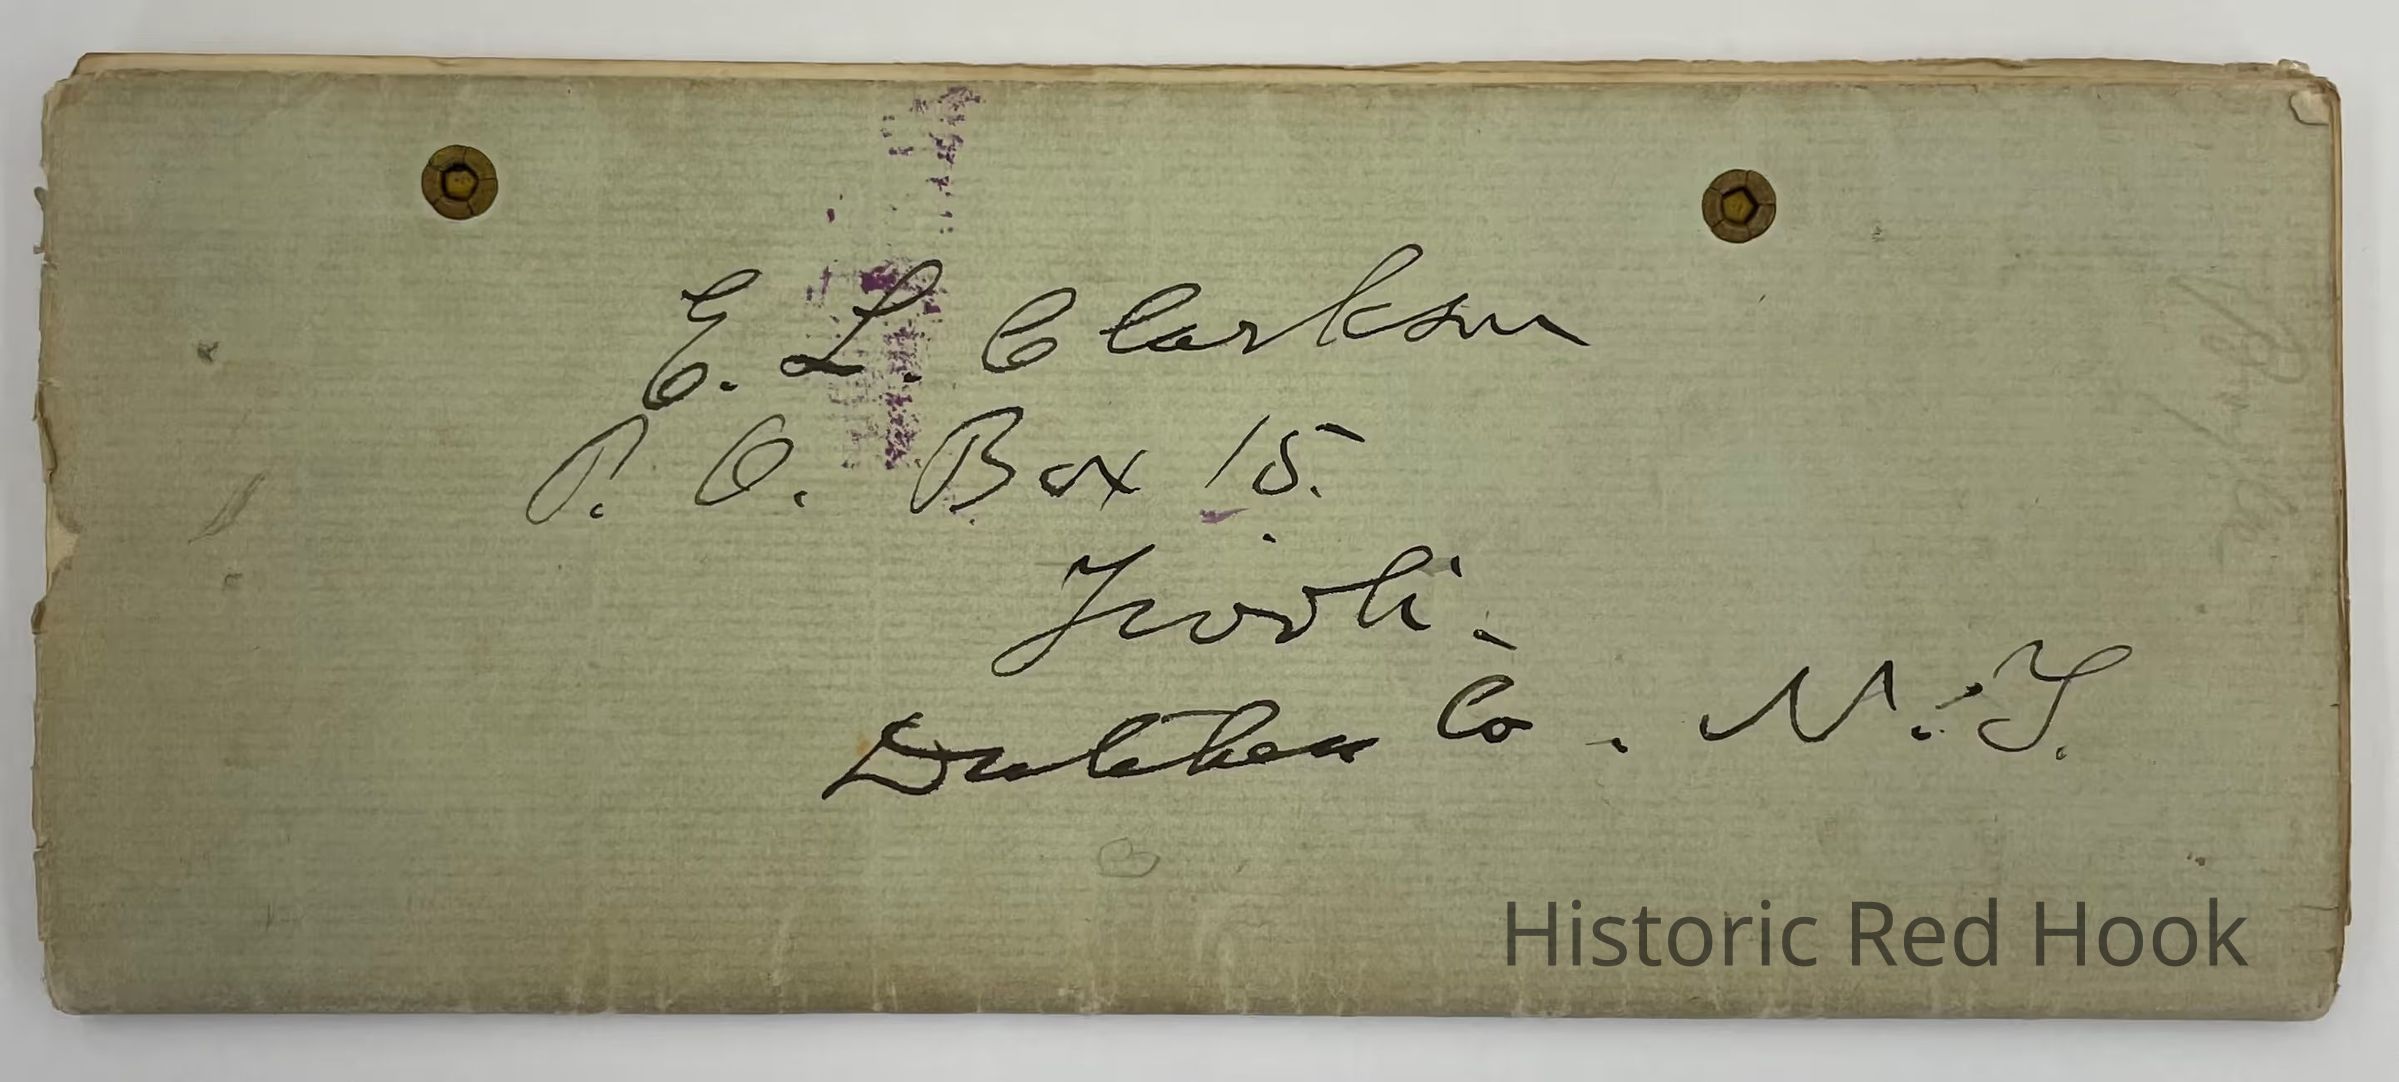 E. L. Clarkson
P. O. Box 15.
Tivoli.
Dutchess Co. N.Y.
Historic Red Hook